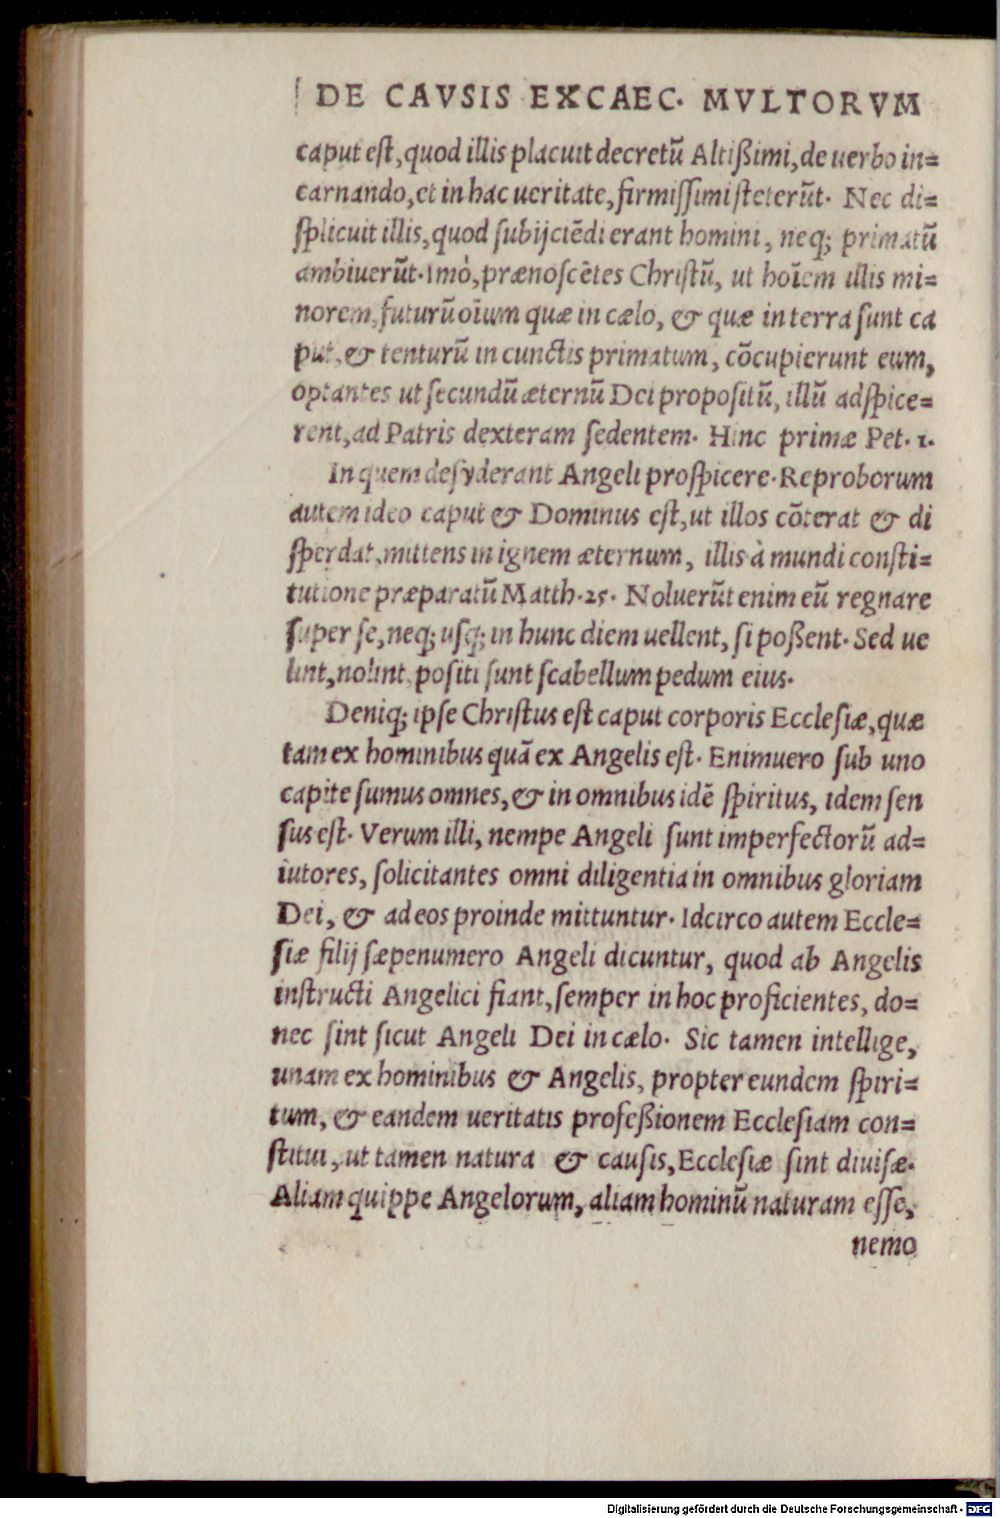 DE CAVSIS EXCAEC. MVLTORVM
caput eſt, quod illis placuit decretũ Altißimi, de uerbo in=
carnando, et in hac ueritate, firmiſſimi ſteterũt. Nec di=
ſplicuit illis, quod ſubijciẽdi erant homini, neq; primatũ
ambiuerũt. Imò, prænoſcẽtes Chriſtũ, ut hoĩem illis mi=
norem, futurũ oĩum quæ in cælo, & quæ in terra ſunt ca
put, & tenturũ in cunctis primatum, cõcupierunt eum,
optantes ut ſecundũ æternũ Dei propoſitũ, illũ adſpice=
rent, ad Patris dexteram ſedentem. Hinc primæ Pet. 1.
In quem deſyderant Angeli proſpicere. Reproborum
autem ideo caput & Dominus eſt, ut illos cõterat & di
ſperdat, mittens in ignem æternum, illis à mundi conſti=
tutione præparatũ Matth. 25. Noluerũt enim eũ regnare
ſuper ſe, neq; uſq; in hunc diem uellent, ſi poßent. Sed ue
lint, nolint, poſiti ſunt ſcabellum pedum eius.
Deniq; ipſe Chriſtus eſt caput corporis Eccleſiæ, quæ
tam ex hominibus quã ex Angelis eſt. Enimuero ſub uno
capite ſumus omnes, & in omnibus idẽ ſpiritus, idem ſen
ſus eſt. Verum illi, nempe Angeli ſunt imperfectorũ ad=
iutores, ſolicitantes omni diligentia in omnibus gloriam
Dei, & ad eos proinde mittuntur. Idcirco autem Eccle=
ſiæ filij ſæpenumero Angeli dicuntur, quod ab Angelis
inſtructi Angelici fiant, ſemper in hoc proficientes, do=
nec ſint ſicut Angeli Dei in cælo. Sic tamen intellige,
unam ex hominibus & Angelis, propter eundem ſpiri=
tum, & eandem ueritatis profeßionem Eccleſiam con=
ſtitui, ut tamen natura & cauſis, Eccleſiæ ſint diuiſæ.
Aliam quippe Angelorum, aliam hominũ naturam eſſe,
nemo
Digitalisierung gefördert durch die Deutsche Forschungsgemeinschaft - DFG